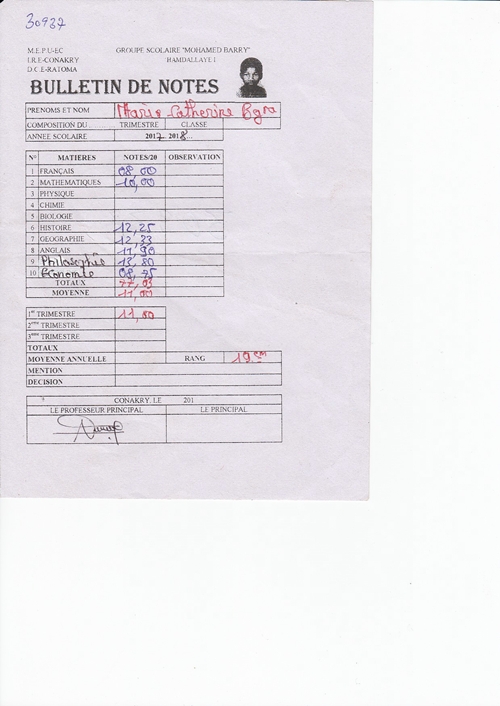 30937
M.E.P U-EC GROUPE SCOLAIRE "MOHAMED BARRY"
I.R.E-CONAKRY HAMDALLAYE I
D.C.E-RATOMA
BULLETIN DE NOTES
PRENOMS ET NOM Marie Catherine
COMPOSITION DU ........ TRIMESTRE CLASSE
ANNEE SCOLAIRE 2017 2018...
N° MATIERES NOTES/20 OBSERVATION
1 FRANÇAIS 08,00
2 MATHEMATIQUES 10,00
3 PHYSIQUE
4 CHIMIE
5 BIOLOGIE
6 HISTOIRE 12,25
7 GEOGRAPHIE 12,33
8 ANGLAIS 11,90
9 Philosophie 13,80
10 Economie 08,75
TOTAUX 77,03
MOYENNE 11,00
1er TRIMESTRE 11,80
2ème TRIMESTRE
3ème TRIMESTRE
TOTAUX
MOYENNE ANNUELLE RANG 19em
MENTION
DECISION
CONAKRY, LE 201
LE PROFESSEUR PRINCIPAL LE PRINCIPAL